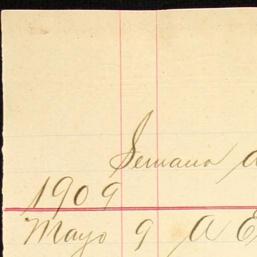 Semana a
1909
Mayo 9 A E